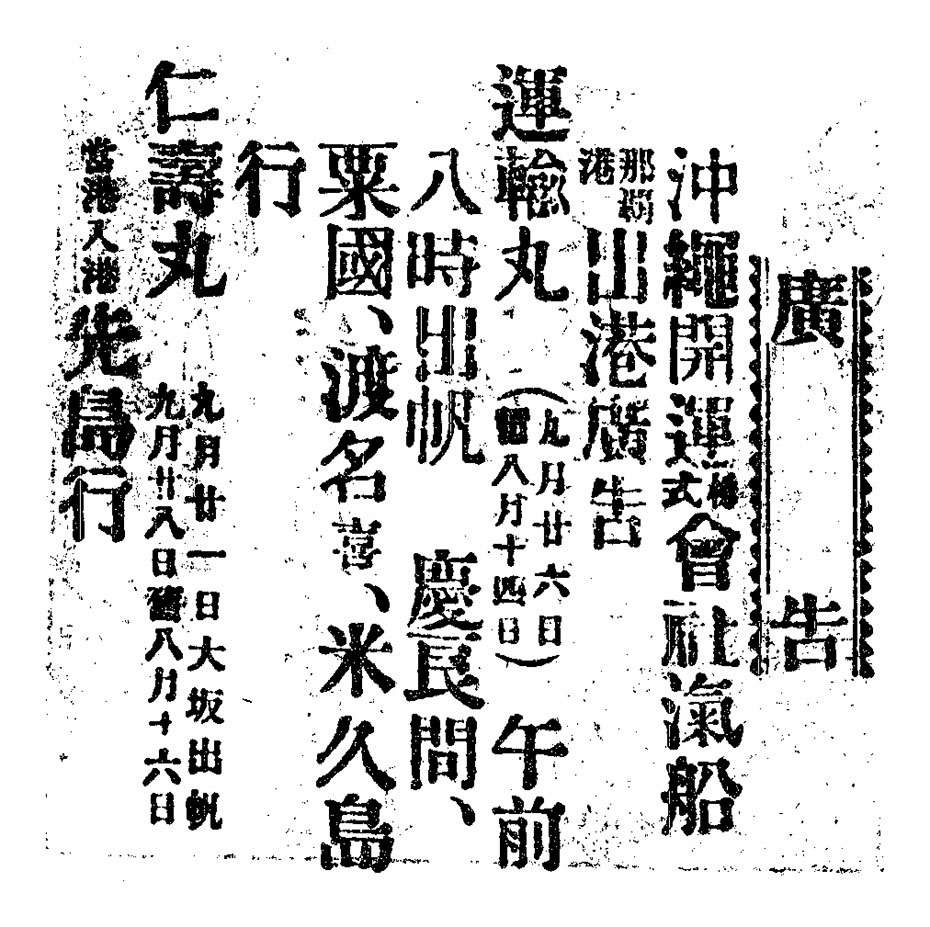 廣告
沖繩開運株式會社滊船
那覇港出港廣告
運輸丸（九月廿六日舊八月十四日）午前
八時出帆　慶良間、
粟國、渡名喜、米久島
行
仁壽丸　九月廿一日大坂出帆
九月廿八日舊八月十六日
當港入港先島行